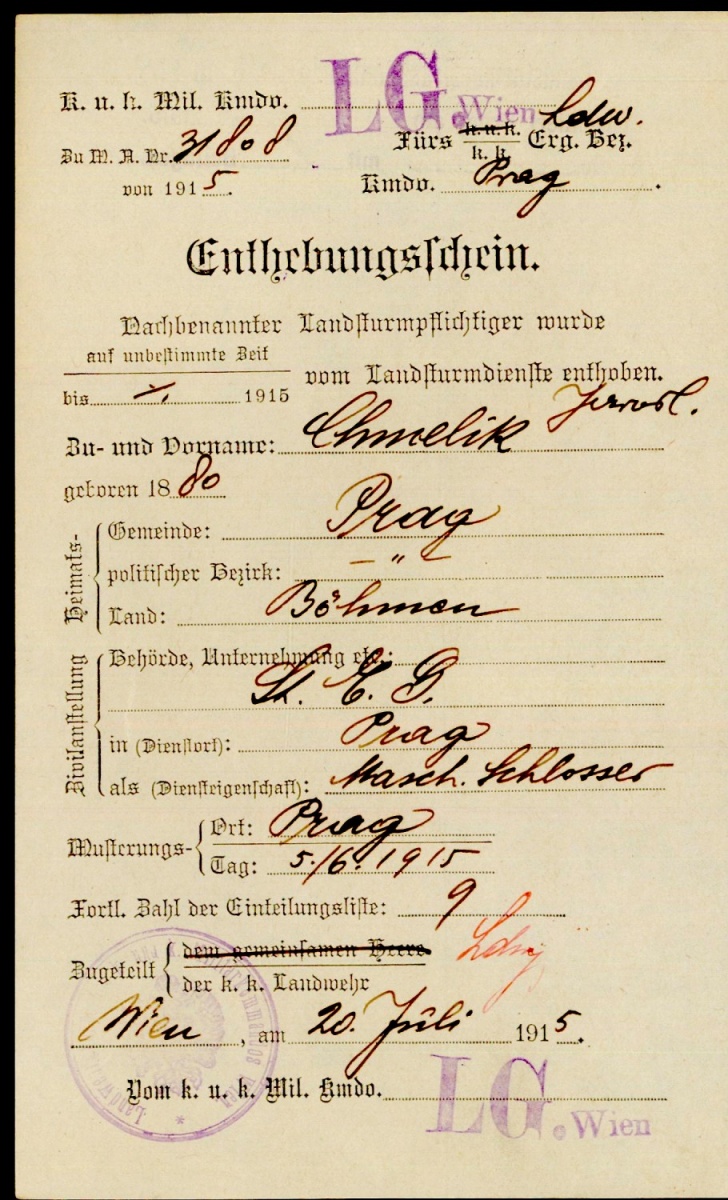 K. u. k. Mil. Kmdo. LG. Wien
Zu M. A. Nr. 31808
von 1915.
Ldw.
Fürs k. u. k. Erg. Bez.
k. k.
Kmdo. Prag.
Enthebungsschein.
Nachbenannter Landsturmpflichtiger wurde
auf unbestimmte Zeit
bis 1915
vom Landsturmdienste enthoben.
Zu- und Vorname: Chmelik
geboren 1880
Heimats-
Gemeinde: Prag
politischer Bezirk: — „ —
Land: Böhmen
Zivilanstellung
Behörde, Unternehmung etc.:
St. E. G.
in (Dienstort): Prag
als (Diensteigenschaft): Masch. Schlosser
Musterungs-
Ort: Prag
Tag: 5./6. 1915
Fortl. Zahl der Einteilungsliste: 9
Zugeteilt
dem gemeinsamen Heere
der k. k. Landwehr
Wien, am 20. Juli 1915.
Vom k. u. k. Mil. Kmdo. LG. Wien